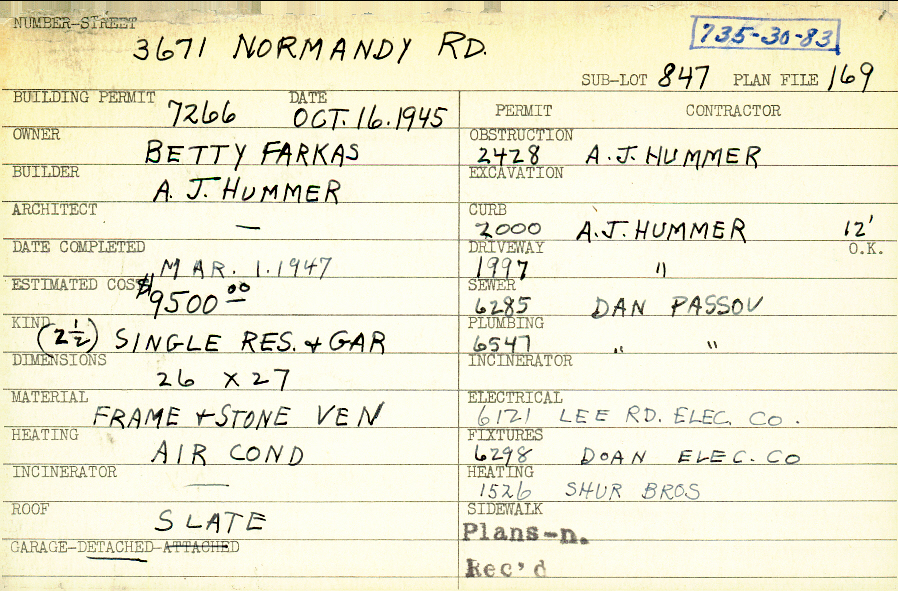 NUMBER-STREET
3671 NORMANDY RD.
735-30-83
SUB-LOT 847 PLAN FILE 169
BUILDING PERMIT 7266 DATE OCT. 16. 1945
OWNER BETTY FARKAS
BUILDER A. J. HUMMER
ARCHITECT —
DATE COMPLETED MAR. 1. 1947
ESTIMATED COST $9500.00
KIND (2½) SINGLE RES. + GAR
DIMENSIONS 26 X 27
MATERIAL FRAME + STONE VEN
HEATING AIR COND
INCINERATOR —
ROOF SLATE
GARAGE-DETACHED-ATTACHED
PERMIT CONTRACTOR
OBSTRUCTION 2428 A. J. HUMMER
EXCAVATION
CURB 2000 A. J. HUMMER 12' O.K.
DRIVEWAY 1997 "
SEWER 6285 DAN PASSOV
PLUMBING 6547 " "
INCINERATOR
ELECTRICAL 6121 LEE RD. ELEC. CO.
FIXTURES 6298 DOAN ELEC. CO
HEATING 1526 SHUR BROS
SIDEWALK
Plans-n.
Rec'd